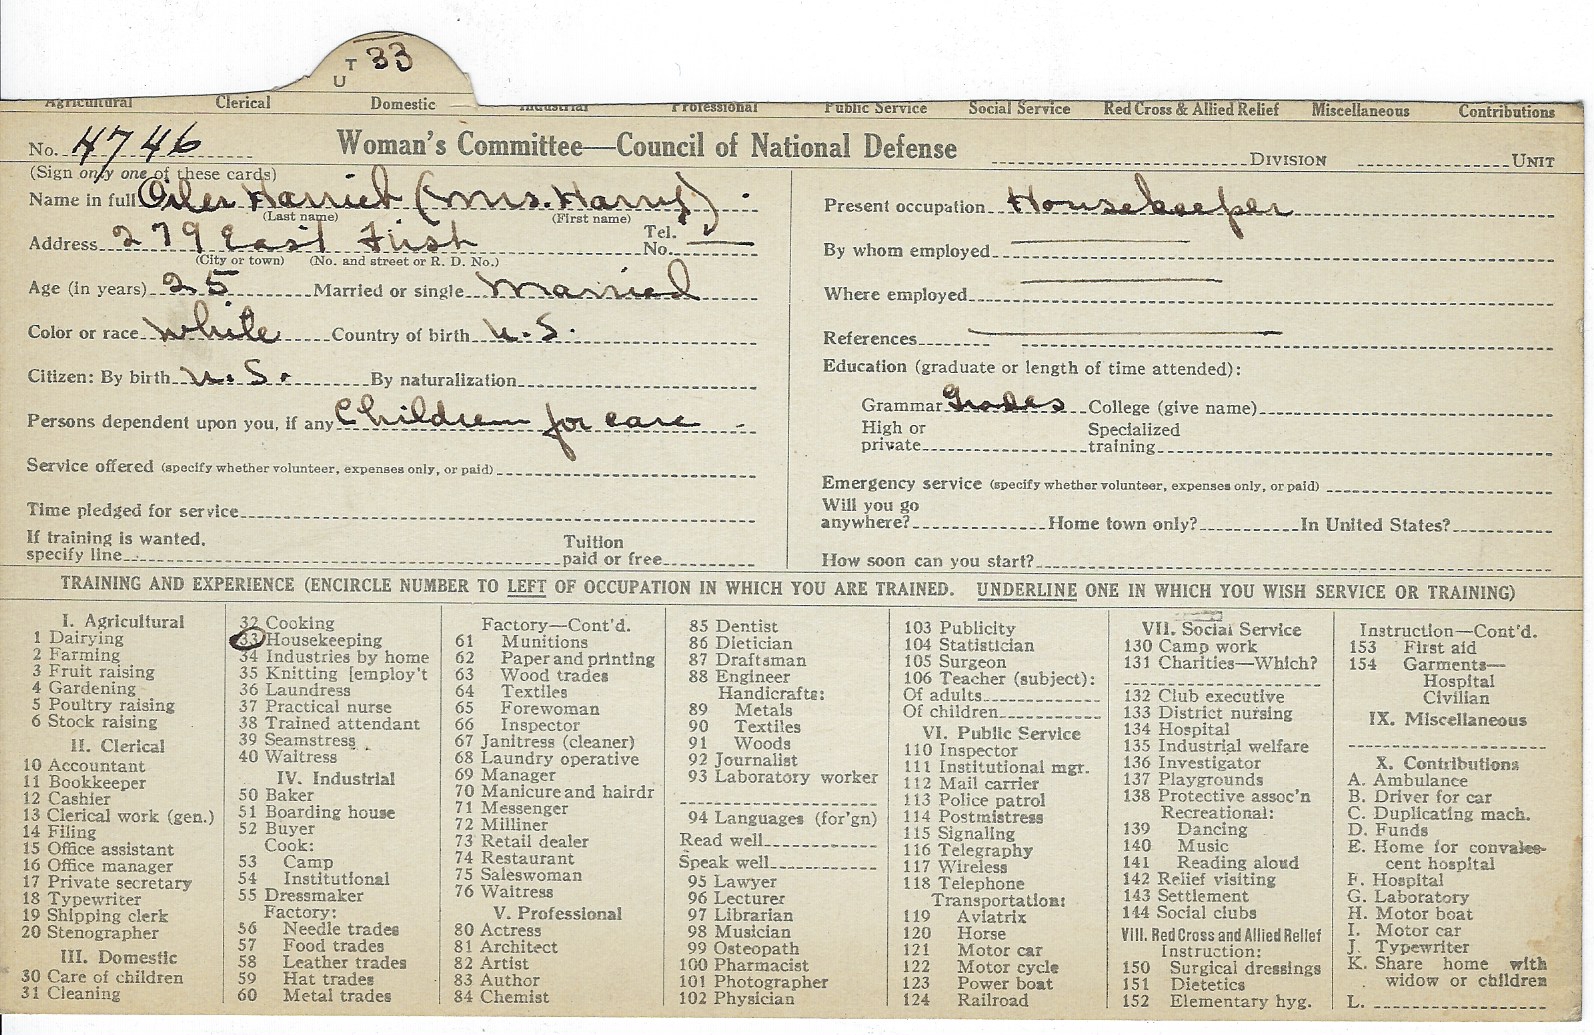 T 33
U
Agricultural Clerical Domestic Industrial Professional Public Service Social Service Red Cross & Allied Relief Miscellaneous Contributions
No. 4746 Woman's Committee—Council of National Defense DIVISION UNIT
(Sign only one of these cards)
Name in full Oiler Harriet (Mrs. Harry)
(Last name) (First name)
Address 279 East First Tel. No.
(City or town) (No. and street or R. D. No.)
Age (in years) 25 Married or single Married
Color or race White Country of birth U.S.
Citizen: By birth U.S. By naturalization
Persons dependent upon you, if any Children for care
Service offered (specify whether volunteer, expenses only, or paid)
Time pledged for service
If training is wanted, Tuition
specify line paid or free
Present occupation Housekeeper
By whom employed
Where employed
References
Education (graduate or length of time attended):
Grammar Grades College (give name)
High or Specialized
private training
Emergency service (specify whether volunteer, expenses only, or paid)
Will you go
anywhere? Home town only? In United States?
How soon can you start?
TRAINING AND EXPERIENCE (ENCIRCLE NUMBER TO LEFT OF OCCUPATION IN WHICH YOU ARE TRAINED. UNDERLINE ONE IN WHICH YOU WISH SERVICE OR TRAINING)
I. Agricultural
1 Dairying
2 Farming
3 Fruit raising
4 Gardening
5 Poultry raising
6 Stock raising
II. Clerical
10 Accountant
11 Bookkeeper
12 Cashier
13 Clerical work (gen.)
14 Filing
15 Office assistant
16 Office manager
17 Private secretary
18 Typewriter
19 Shipping clerk
20 Stenographer
III. Domestic
30 Care of children
31 Cleaning
32 Cooking
33 Housekeeping
34 Industries by home
35 Knitting [employ't
36 Laundress
37 Practical nurse
38 Trained attendant
39 Seamstress
40 Waitress
IV. Industrial
50 Baker
51 Boarding house
52 Buyer
Cook:
53 Camp
54 Institutional
55 Dressmaker
Factory:
56 Needle trades
57 Food trades
58 Leather trades
59 Hat trades
60 Metal trades
Factory—Cont'd.
61 Munitions
62 Paper and printing
63 Wood trades
64 Textiles
65 Forewoman
66 Inspector
67 Janitress (cleaner)
68 Laundry operative
69 Manager
70 Manicure and hairdr
71 Messenger
72 Milliner
73 Retail dealer
74 Restaurant
75 Saleswoman
76 Waitress
V. Professional
80 Actress
81 Architect
82 Artist
83 Author
84 Chemist
85 Dentist
86 Dietician
87 Draftsman
88 Engineer
Handicrafts:
89 Metals
90 Textiles
91 Woods
92 Journalist
93 Laboratory worker
94 Languages (for'gn)
Read well
Speak well
95 Lawyer
96 Lecturer
97 Librarian
98 Musician
99 Osteopath
100 Pharmacist
101 Photographer
102 Physician
103 Publicity
104 Statistician
105 Surgeon
106 Teacher (subject):
Of adults
Of children
VI. Public Service
110 Inspector
111 Institutional mgr.
112 Mail carrier
113 Police patrol
114 Postmistress
115 Signaling
116 Telegraphy
117 Wireless
118 Telephone
Transportation:
119 Aviatrix
120 Horse
121 Motor car
122 Motor cycle
123 Power boat
124 Railroad
VII. Social Service
130 Camp work
131 Charities—Which?
132 Club executive
133 District nursing
134 Hospital
135 Industrial welfare
136 Investigator
137 Playgrounds
138 Protective assoc'n
Recreational:
139 Dancing
140 Music
141 Reading aloud
142 Relief visiting
143 Settlement
144 Social clubs
VIII. Red Cross and Allied Relief
Instruction:
150 Surgical dressings
151 Dietetics
152 Elementary hyg.
Instruction—Cont'd.
153 First aid
154 Garments—
Hospital
Civilian
IX. Miscellaneous
X. Contributions
A. Ambulance
B. Driver for car
C. Duplicating mach.
D. Funds
E. Home for convales-
cent hospital
F. Hospital
G. Laboratory
H. Motor boat
I. Motor car
J. Typewriter
K. Share home with
widow or children
L.